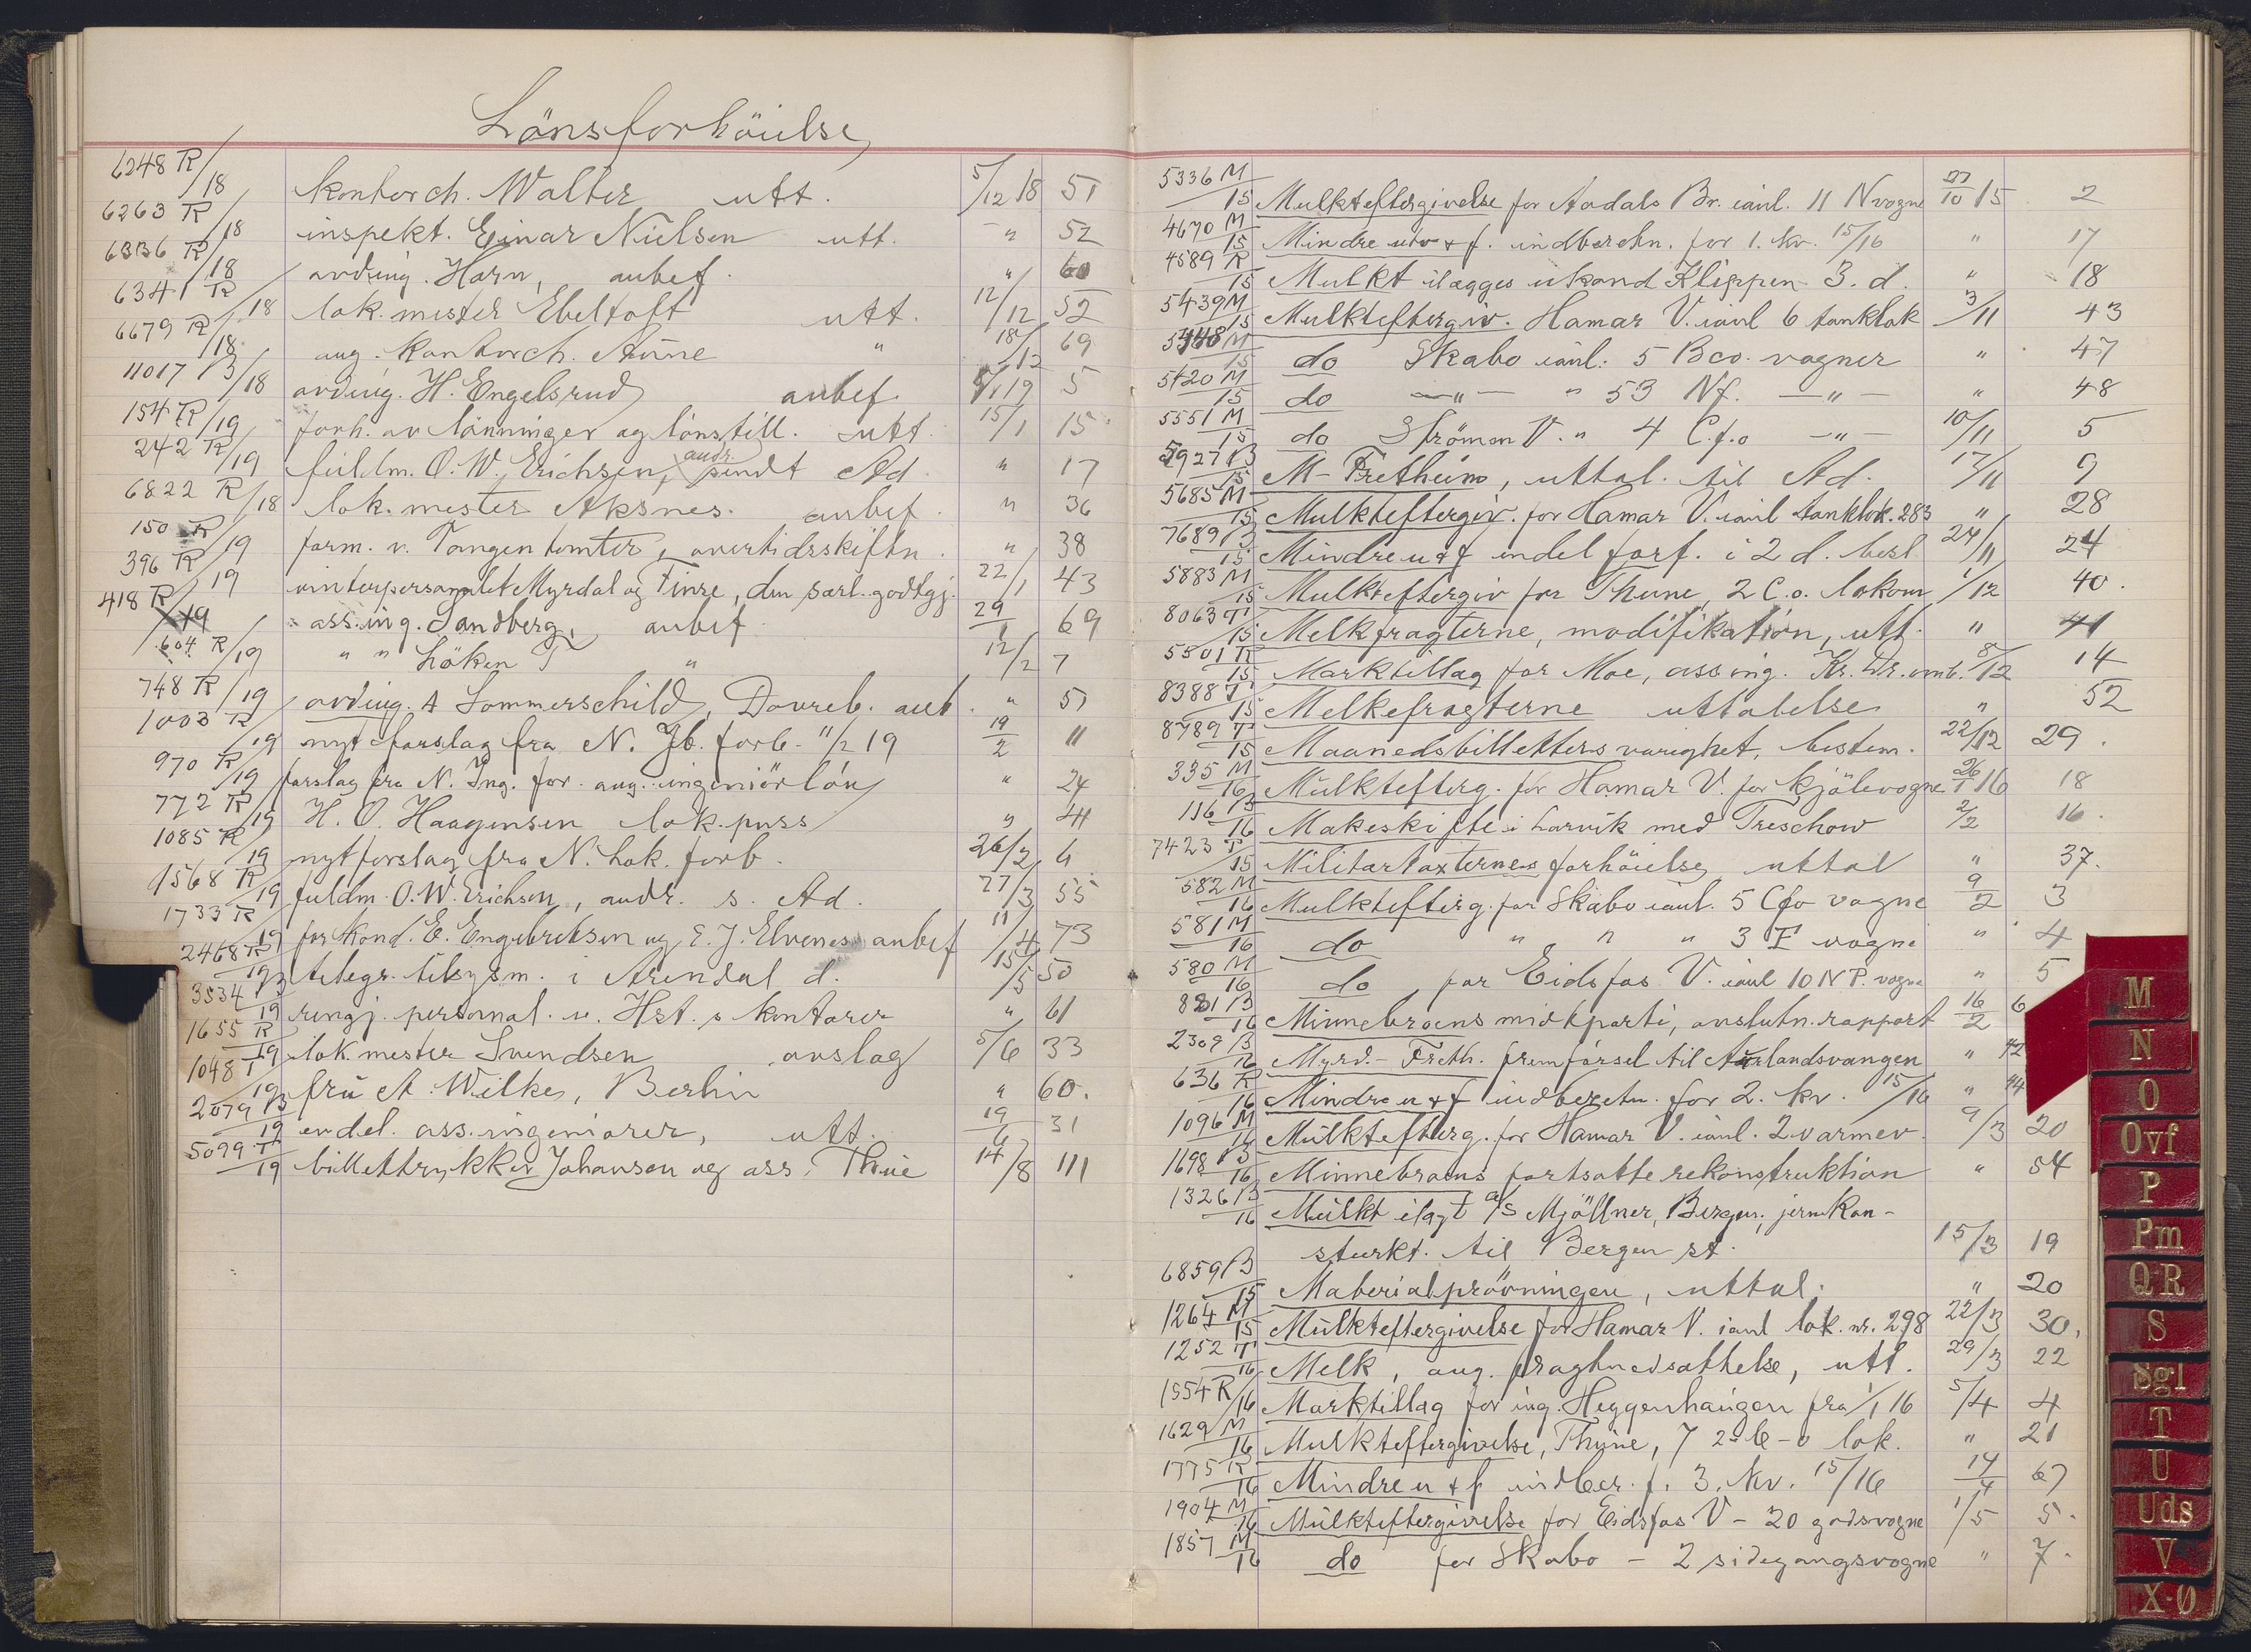 Lönsforhöielse
6248 R/18 kontorch. Walter utt. 5/12 18 51
6263 R/18 inspekt. Einar Nielsen utt. " 52
6336 R/18 avding. Horn, anbef. " 60
6341 R/18 lok. mester Ebeltoft utt. 12/12 52
6679 R/18 ang. kontorch. Aüne " 18/12 69
11017 B/18 avding. H. Engelsrud anbef. 8/1 19 5
154 R/19 forh. av lönninger og lönstill. utt. 15/1 15
242 R/19 fuldm. O. W. Erichsen, andr. sendt Ad. " 17
6822 R/18 lok. mester Aksnes. anbef. " 36
150 R/19 form. v. Tangen tomter, overtidsskiftn. " 38
396 R/19 vinterpersonalet Myrdal og Finse, den særl. godtgj. 22/1 43
418 R/19 ass. ing. Sandberg, anbef. 29/1 69
604 R/19 " " Löken T " 12/2 7
748 R/19 avding. A Sommerschild, Dovreb. anb. " 51
1003 R/19 nyt forslag fra N. Jb. forb. 11/2 19 19/2 11
970 R/19 forslag fra N. Ing. for. ang. ingeniörlön " 24
772 R/19 H. O. Haagensen lok. puss " 44
1085 R/19 nyt forslag fra N. Lok. forb. 26/2 6
1568 R/19 fuldm. O. W. Erichsen, andr. s. Ad. 27/3 55
1733 R/19 for kond. E. Engebretsen og E. J. Elvenes anbef 11/4 73
2468 R/19 telegr. tilsysm. i Arendal d. 15/5 50
3534 B/19 rengj. personal. v. Hst. s kontorer " 61
1655 R/19 lok. mester Svendsen avslag 5/6 33
1048 T/19 fru A. Wilkes, Berlin " 60.
2079 B/19 endel. ass. ingeniörer, utt. 19/6 31
5099 T/19 billettrykker Johansen og ass. Thüe 14/8 111
5336 M/15 Mulkteftergivelse for Aadals Br. iavl. 11 N vogne 27/10 15 2
4670 M/15 Mindre utv + f. indberetn. for 1. kv. 15/16 " 17
4589 R/15 Mulkt ilægges ukond Klippen 3. d. " 18
5439 M/15 Mulkteftergiv. Hamar V. iavl 6 tanklok 3/11 43
M/15 do Skabo iavl. 5 Bco. vogner " 47
5420 M/15 do —"— " 53 Nf. —"— " 48
5551 M/15 do Strömm V. " 4 C.f.o —"— 10/11 5
5927 B/15 M-Fretheim, uttal. til Ad. 17/11 9
5685 M/15 Mulkteftergiv. for Hamar V. iavl tanklok. 283 " 28
7689 B/15 Mindre u + f endel forf. i 2 d. besl 24/11 24
5883 M/15 Mulkteftergiv for Thune, 2 C.o. lokom 1/12 40.
8063 T/15 Melkfragterne, modifikation, utt. " 41
5501 R/15 Marktillag for Moe, ass ing. Kr. Dr. omb. 8/12 14
8388 T/15 Melkefragterne uttalelse " 52
8789 T/15 Maanedsbilletters varighet, bestem. 22/12 29.
335 M/16 Mulktefterg. for Hamar V. for kjölevogne 26/1 16 18
116 B/16 Makeskifte i Larvik med Treschow 2/2 16.
7423 T/15 Militærtaxternes forhöielse uttal " 37.
582 M/16 Mulktefterg. for Skabo iavl. 5 Cfo vogne 9/2 3
581 M/16 do " " " 3 F vogne " 4
580 M/16 do for Eidsfos V. iavl 10 N P. vogne " 5
881 B/16 Minnebroens midtparti, avslutn. rapport 16/2 6
2309 B/16 Myrd.- Freth. fremförsel til Aurlandsvangen " 42
636 R/16 Mindre u + f indberetn. for 2. kv. 15/16 " 44
1096 M/16 Mulktefterg. for Hamar V. iavl. 2 varmev. 9/3 20
1698 B/16 Minnebroens fortsatte rekonstruktion " 54
1326 B/16 Mulkt ilagt a/s Mjöllner, Bergen, jernkon-
sturkt. til Bergen st. 15/3 19
6859 B/15 Materialprövningen, uttal. " 20
1264 M/15 Mulkteftergivelse for Hamar V. iavl lok. nr. 298 22/3 30.
1252 T/16 Melk, ang. fragtnedsættelse, utt. 29/3 22
1554 R/16 Marktillag for ing. Heggenhaugen fra 1/1 16 5/4 4
1629 M/16 Mulkteftergivelse, Thune, 7 2-C-o lok. " 21
1775 R/16 Mindre u + f indber. f. 3. kv. 15/16 14/4 67
1904 M/16 Mulkteftergivelse for Eidsfos V - 20 godsvogne 1/5 5.
1857 M/16 do for Skabo - 2 sidegangsvogne " 7.
M
N
O
Ovf
P
Pm
QR
S
Sgl
T
U
Uds
V
X-Ø